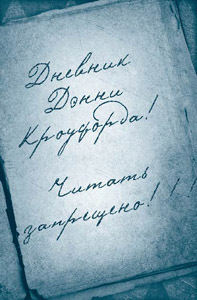 Дневник
Дэнни
Кроуфорда!
Читать
запрещено! ! !